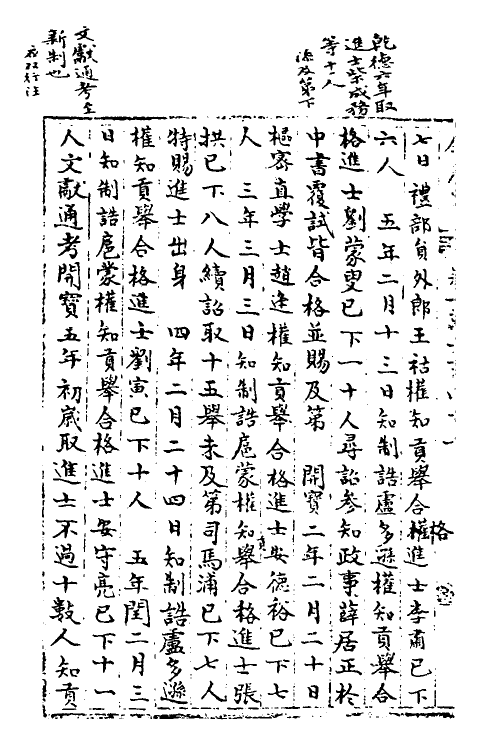 乾德六年取
進士柴成務
等十人
添及第下
文獻通考至
新制也
夜双行注
七日禮部員外郎王祜權知貢舉合權進士李肅已下
格
六人 五年二月十三日知制誥盧多遜權知貢舉合
格進士劉蒙叟已下一十人尋詔參知政事薛居正於
中書覆試皆合格並賜及第 開寶二年二月二十日
樞密直學士趙逢權知貢舉合格進士安德裕已下七
人 三年三月三日知制誥扈蒙權知舉合格進士張
貢
拱已下八人續詔取十五舉未及第司馬浦已下七人
特賜進士出身 四年二月二十四日知制誥盧多遜
權知貢舉合格進士劉寅已下十人 五年閏二月三
日知制誥扈蒙權知貢舉合格進士安守亮已下十一
人文獻通考開寶五年初歲取進士不過十數人知貢